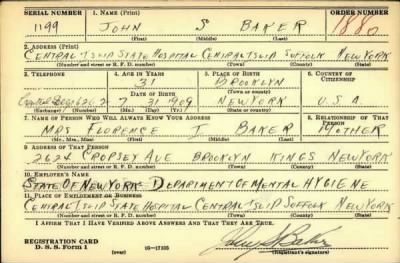 SERIAL NUMBER 1. NAME (Print) ORDER NUMBER
1199 JOHN S BAKER 1880
(First) (Middle) (Last)
2. ADDRESS (Print)
CENTRAL ISLIP STATE HOSPITAL CENTRAL ISLIP SUFFOLK NEW YORK
(Number and street or R. F. D. number) (Town) (County) (State)
3. TELEPHONE 4. AGE IN YEARS 5. PLACE OF BIRTH 6. COUNTRY OF CITIZENSHIP
31 BROOKLYN
DATE OF BIRTH (Town or county)
7 31 1909 NEW YORK U.S.A.
(Exchange) (Number) (Mo.) (Day) (Yr.) (State or country)
7. NAME OF PERSON WHO WILL ALWAYS KNOW YOUR ADDRESS 8. RELATIONSHIP OF THAT PERSON
MRS FLORENCE I BAKER MOTHER
(Mr., Mrs., Miss) (First) (Middle) (Last)
9. ADDRESS OF THAT PERSON
2634 CROPSEY AVE BROOKLYN KINGS NEW YORK
(Number and street or R. F. D. number) (Town) (County) (State)
10. EMPLOYER'S NAME
STATE OF NEW YORK DEPARTMENT OF MENTAL HYGIENE
11. PLACE OF EMPLOYMENT OR BUSINESS
CENTRAL ISLIP STATE HOSPITAL CENTRAL ISLIP SUFFOLK NEW YORK
(Number and street or R. F. D. number) (Town) (County) (State)
I AFFIRM THAT I HAVE VERIFIED ABOVE ANSWERS AND THAT THEY ARE TRUE.
REGISTRATION CARD
D. S. S. Form 1 (over) 16—17105 John S Baker
(Registrant's signature)